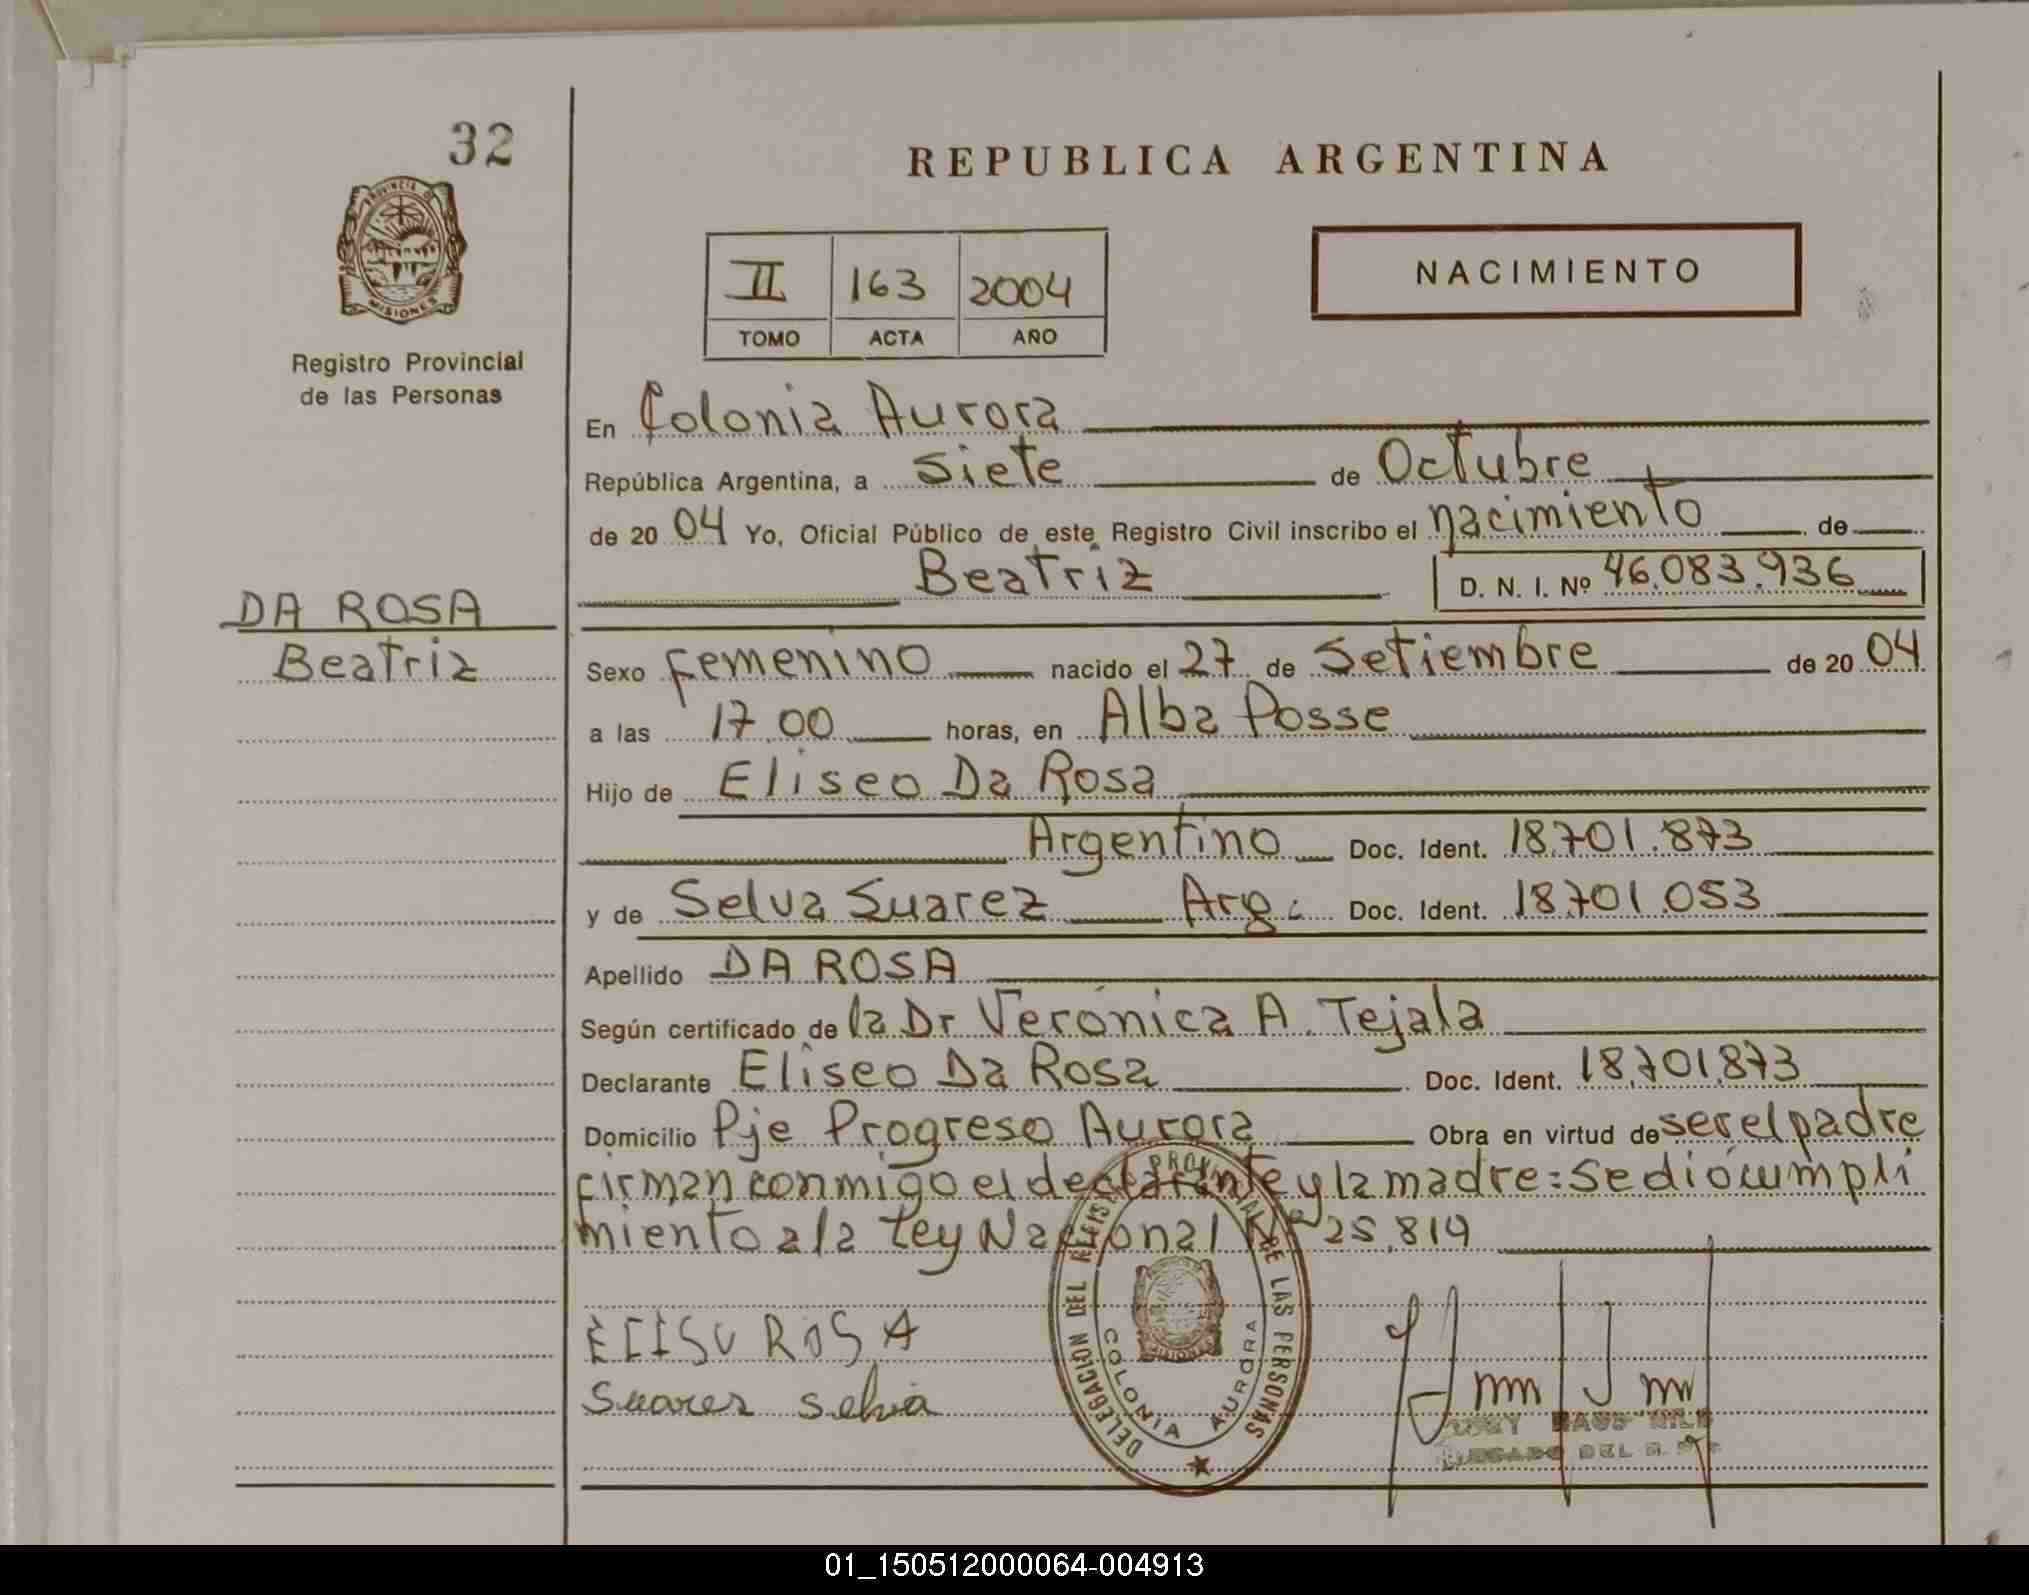 32
REPUBLICA ARGENTINA
PROVINCIA D
MISIONES
Registro Provincial
de las Personas
II 163 2004
TOMO ACTA AÑO
NACIMIENTO
En Colonia Aurora
República Argentina, a siete de Octubre
de 2004 Yo, Oficial Público de este Registro Civil inscribo el nacimiento de
Beatriz D. N. I. Nº 46.083.936
DA ROSA
Beatriz
Sexo femenino nacido el 27 de Setiembre de 2004
a las 17 00 horas, en Alba Posse
Hijo de Eliseo Da Rosa
Argentino Doc. Ident. 18.701.873
y de Selva Suarez Arg. Doc. Ident. 18.701.053
Apellido DA ROSA
Según certificado de la Dr Verónica A. Tejala
Declarante Eliseo Da Rosa Doc. Ident. 18.701.873
Domicilio Pje Progreso Aurora Obra en virtud de ser el padre
firman conmigo el declarante y la madre = se dió cumpli
miento a la Ley Nacional Nº 25.819
ELISU ROSA
Suares Selva
DELEGACION DEL REGISTRO PROVINCIAL DE LAS PERSONAS
COLONIA AURORA
DEL R.
01_150512000064-004913